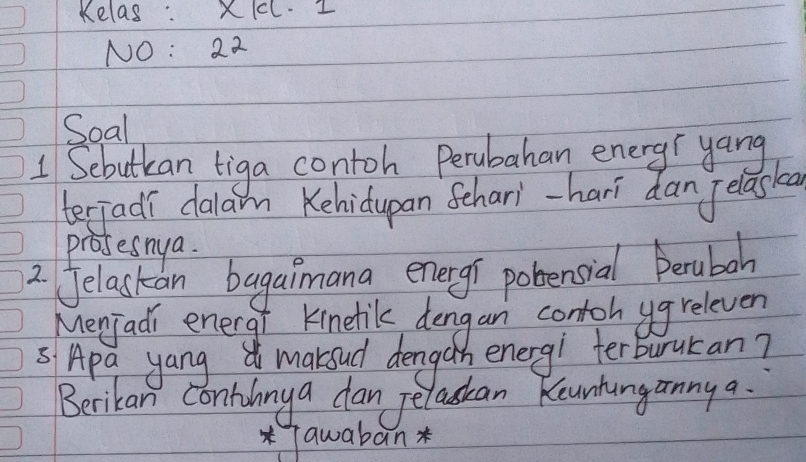 Kelas : X kl. 1
NO : 22
Soal
1 Sebutkan tiga contoh Perubahan energi yang
terjadi dalam Kehidupan Sehari-hari dan jelaskan
prosesnya.
2. Jelaskan bagaimana energi potensial berubah
Menjadi energi kinetik dengan contoh yg releven
3. Apa yang di maksud dengan energi terburukan?
Berikan Contohnya dan jelaskan Keuntungannya.
* Jawaban *